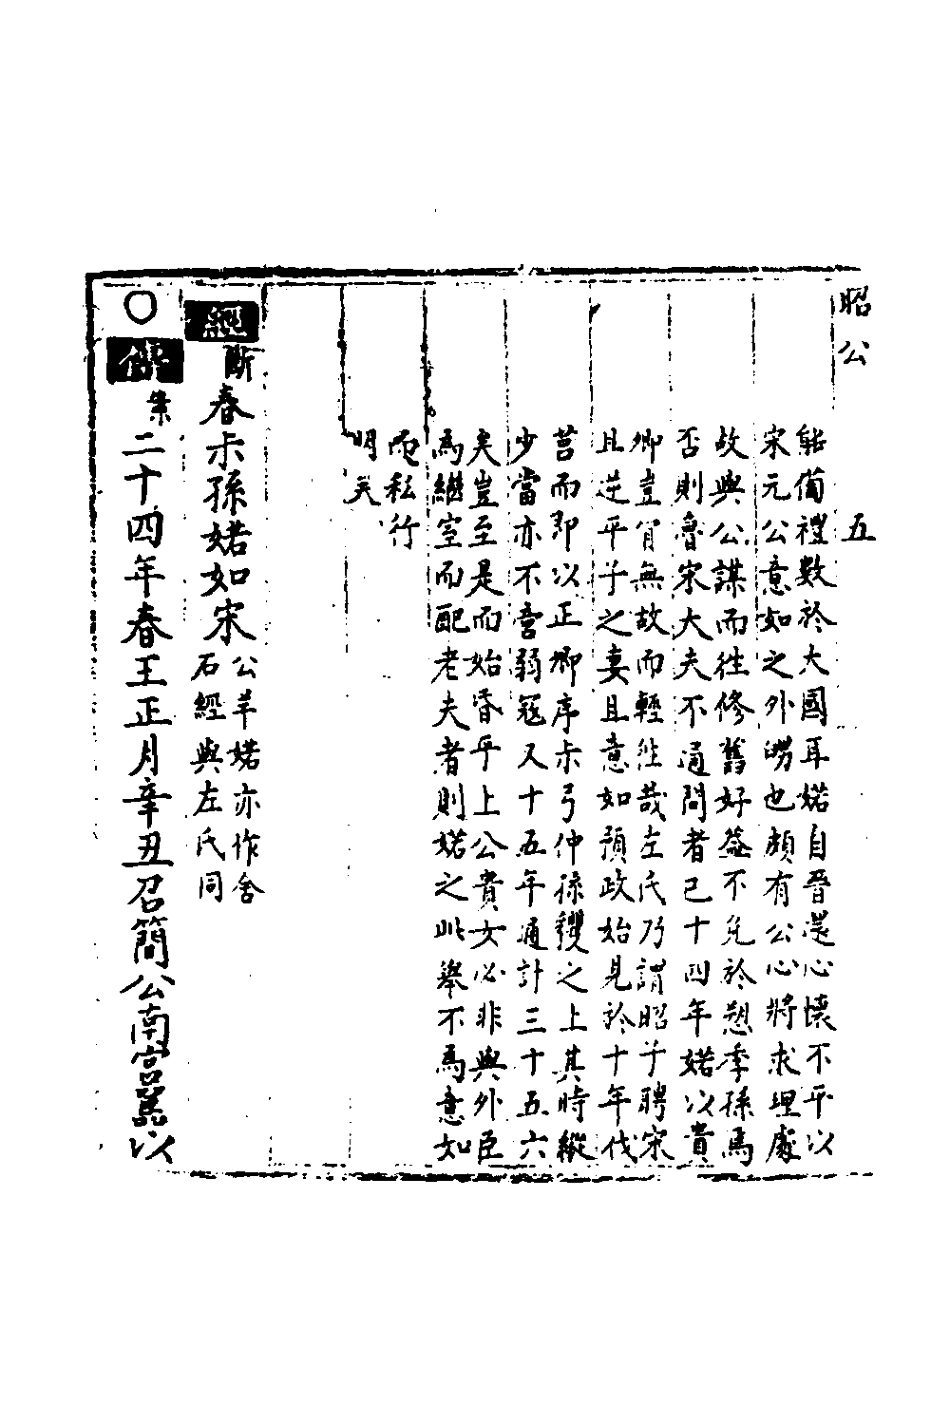 昭公 五
能備禮數於大國耳婼自晉還心懷不平以
宋元公意如之外甥也頗有公心將求理處
故與公謀而往修舊好益不免於愬季孫為
否則魯宋大夫不通問者已十四年婼以貴
卿豈肯無故而輕往哉左氏乃謂昭子聘宋
且逆平子之妻且意如預政始見於十年伐
莒而即以正卿序叔弓仲孫貜之上其時縱
少當亦不啻弱冠又十五年通計三十五六
矣豈至是而始昏乎上公貴女必非與外臣
為繼室而配老夫者則婼之此舉不為意如
而私行
明矣
經 斷春叔孫婼如宋 公羊婼亦作舍
石經與左氏同
○傳 集二十四年春王正月辛丑召簡公南宮嚚以